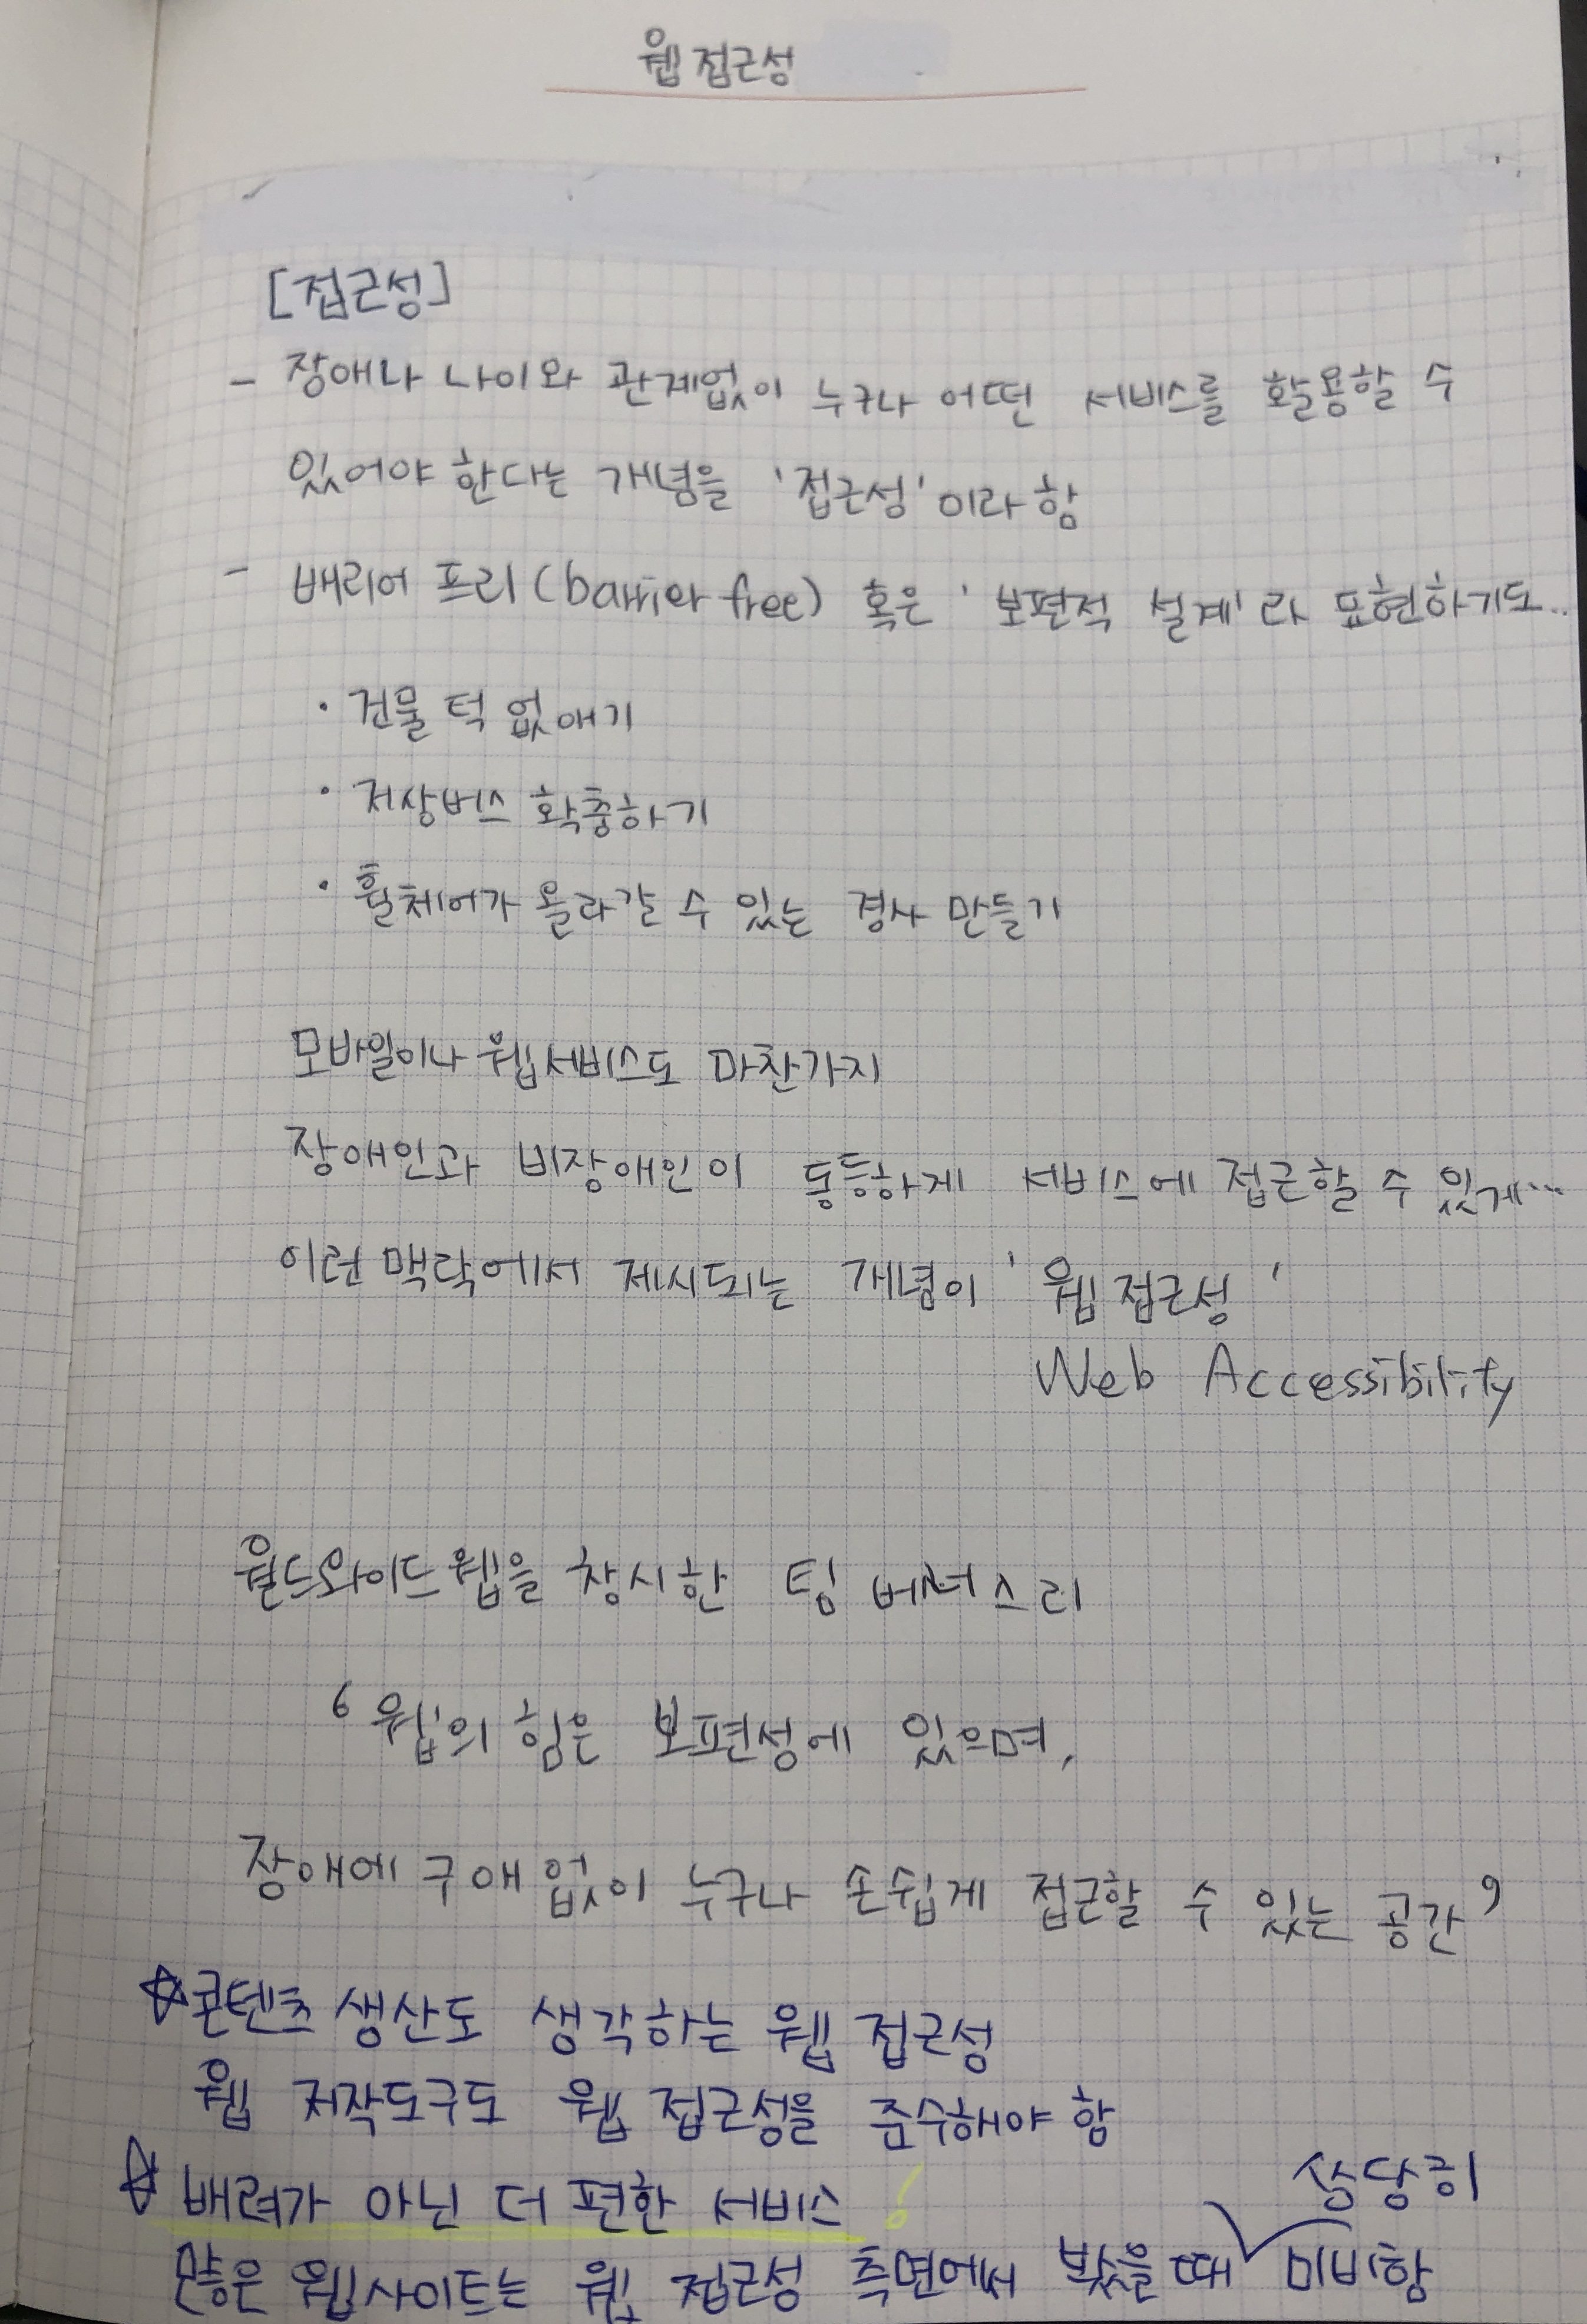 웹 접근성
[접근성]
- 장애나 나이와 관계없이 누구나 어떤 서비스를 활용할 수
있어야 한다는 개념을 '접근성'이라 함
- 배리어 프리 (barrier free) 혹은 '보편적 설계'라 표현하기도..
· 건물 턱 없애기
· 저상버스 확충하기
· 휠체어가 올라갈 수 있는 경사 만들기
모바일이나 웹서비스도 마찬가지
장애인과 비장애인이 동등하게 서비스에 접근할 수 있게...
이런 맥락에서 제시되는 개념이 '웹 접근성'
Web Accessibility
월드와이드 웹을 창시한 팀 버너스 리
'웹의 힘은 보편성에 있으며,
장애에 구애 없이 누구나 손쉽게 접근할 수 있는 공간'
☆콘텐츠 생산도 생각하는 웹 접근성
웹 저작도구도 웹 접근성을 준수해야 함
☆ 배려가 아닌 더 편한 서비스!
많은 웹사이트는 웹 접근성 측면에서 봤을 때 상당히 미비함